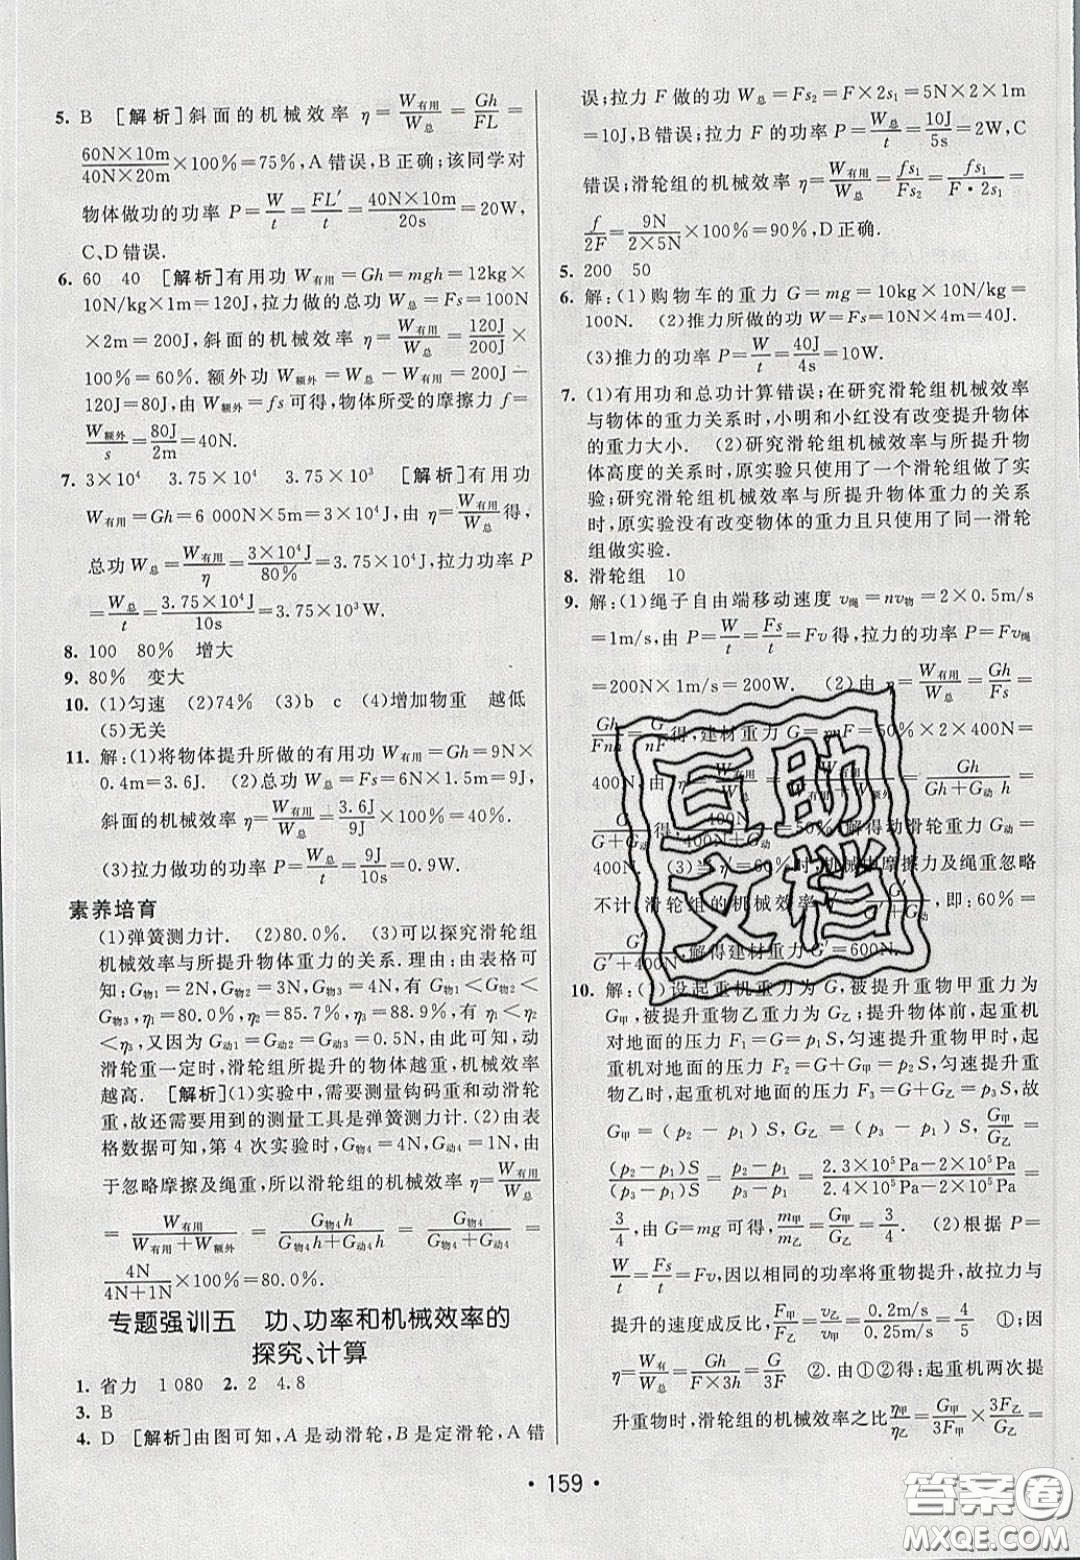 5. B [解析]斜面的机械效率 η=W有用/W总=Gh/FL=
60N×10m/40N×20m×100%=75%,A错误,B正确;该同学对
物体做功的功率 P=W/t=FL′/t=40N×10m/20s=20W,
C、D错误.
6. 60 40 [解析]有用功 W有用=Gh=mgh=12kg×
10N/kg×1m=120J,拉力做的总功 W总=Fs=100N
×2m=200J,斜面的机械效率 η=W有用/W总=120J/200J×
100%=60%.额外功 W额外=W总-W有用=200J-
120J=80J,由 W额外=fs 可得,物体所受的摩擦力 f=
W额外/s=80J/2m=40N.
7. 3×10⁴ 3.75×10⁴ 3.75×10³ [解析]有用功
W有用=Gh=6 000N×5m=3×10⁴J,由 η=W有用/W总得,
总功 W总=W有用/η=3×10⁴J/80%=3.75×10⁴J,拉力功率 P
=W总/t=3.75×10⁴J/10s=3.75×10³W.
8. 100 80% 增大
9. 80% 变大
10. (1)匀速 (2)74% (3)b c (4)增加物重 越低
(5)无关
11. 解:(1)将物体提升所做的有用功 W有用=Gh=9N×
0.4m=3.6J. (2)总功 W总=Fs=6N×1.5m=9J,
斜面的机械效率 η=W有用/W总=3.6J/9J×100%=40%.
(3)拉力做功的功率 P=W总/t=9J/10s=0.9W.
素养培育
(1)弹簧测力计. (2)80.0% (3)可以探究滑轮组
机械效率与所提升物体重力的关系.理由:由表格可
知:G物1=2N,G物2=3N,G物3=4N,有 G物1<G物2<
G物3,η1=80.0%,η2=85.7%,η3=88.9%,有 η1<η2
<η3,又因为 G动1=G动2=G动3=0.5N,由此可知,动
滑轮重一定时,滑轮组所提升的物体越重,机械效率
越高. [解析](1)实验中,需要测量钩码重和动滑轮
重,故还需要用到的测量工具是弹簧测力计.(2)由表
格数据可知,第 4 次实验时,G物4=4N,G动4=1N,由
于忽略摩擦及绳重,所以滑轮组的机械效率 η=W有用/W总
=W有用/W有用+W额外=G物4h/G物4h+G动4h=G物4/G物4+G动4=
4N/4N+1N×100%=80.0%.
专题强训五 功、功率和机械效率的
探究、计算
1. 省力 1 080 2. 2 4.8
3. B
4. D [解析]由图可知,A 是动滑轮,B 是定滑轮,A 错
误;拉力 F 做的功 W总=Fs2=F×2s1=5N×2×1m
=10J,B错误;拉力 F 的功率 P=W总/t=10J/5s=2W,C
错误;滑轮组的机械效率 η=W有用/W总=fs1/Fs2=fs1/F·2s1=
f/2F=9N/2×5N×100%=90%,D 正确.
5. 200 50
6. 解:(1)购物车的重力 G=mg=10kg×10N/kg=
100N. (2)推力所做的功 W=Fs=10N×4m=40J.
(3)推力的功率 P=W/t=40J/4s=10W.
7. (1)有用功和总功计算错误;在研究滑轮组机械效率
与物体的重力关系时,小明和小红没有改变提升物体
的重力大小. (2)研究滑轮组机械效率与所提升物
体高度的关系时,原实验只使用了一个滑轮组做了实
验;研究滑轮组机械效率与所提升物体重力的关系
时,原实验没有改变物体的重力且使用了同一滑轮
组做实验.
8. 滑轮组 10
9. 解:(1)绳子自由端移动速度 v绳=nv物=2×0.5m/s
=1m/s,由 P=W/t=Fs/t=Fv 得,拉力的功率 P=Fv绳
=200N×1m/s=200W. (2)由 η=W有用/W总=Gh/Fs=
Gh/Fnh=G/nF得,建材重力 G=ηnF=50%×2×400N=
400N.由 η=W有用/W总=W有用/W有用+W额外=Gh/Gh+G动h=
G/G+G动得,400N/400N+G动=50%,解得动滑轮重力 G动=
400N. (3)当 η′=60%时,机械中摩擦力及绳重忽略
不计,滑轮组的机械效率 η′=G′/G′+G动,即:60%=
G′/G′+400N,解得建材重力 G′=600N.
10. 解:(1)设起重机重力为 G,被提升重物甲重力为
G甲,被提升重物乙重力为 G乙;提升物体前,起重机
对地面的压力 F1=G=p1S,匀速提升重物甲时,起
重机对地面的压力 F2=G+G甲=p2S,匀速提升重
物乙时,起重机对地面的压力 F3=G+G乙=p3S,故
G甲=(p2-p1)S,G乙=(p3-p1)S,G甲/G乙=
(p2-p1)S/(p3-p1)S=p2-p1/p3-p1=2.3×10⁵Pa-2×10⁵Pa/2.4×10⁵Pa-2×10⁵Pa=
3/4,由 G=mg 可得,m甲/m乙=G甲/G乙=3/4. (2)根据 P=
W/t=Fs/t=Fv,因以相同的功率将重物提升,拉力与
提升的速度成反比,F甲/F乙=v乙/v甲=0.2m/s/0.25m/s=4/5 ①.
η=W有用/W总=Gh/F×3h=G/3F ②.由①②得:起重机两次提
升重物时,滑轮组的机械效率之比η甲/η乙=G甲/3F甲×3F乙/G乙=
·159·
互助
文档
答案圈
MXQE.COM